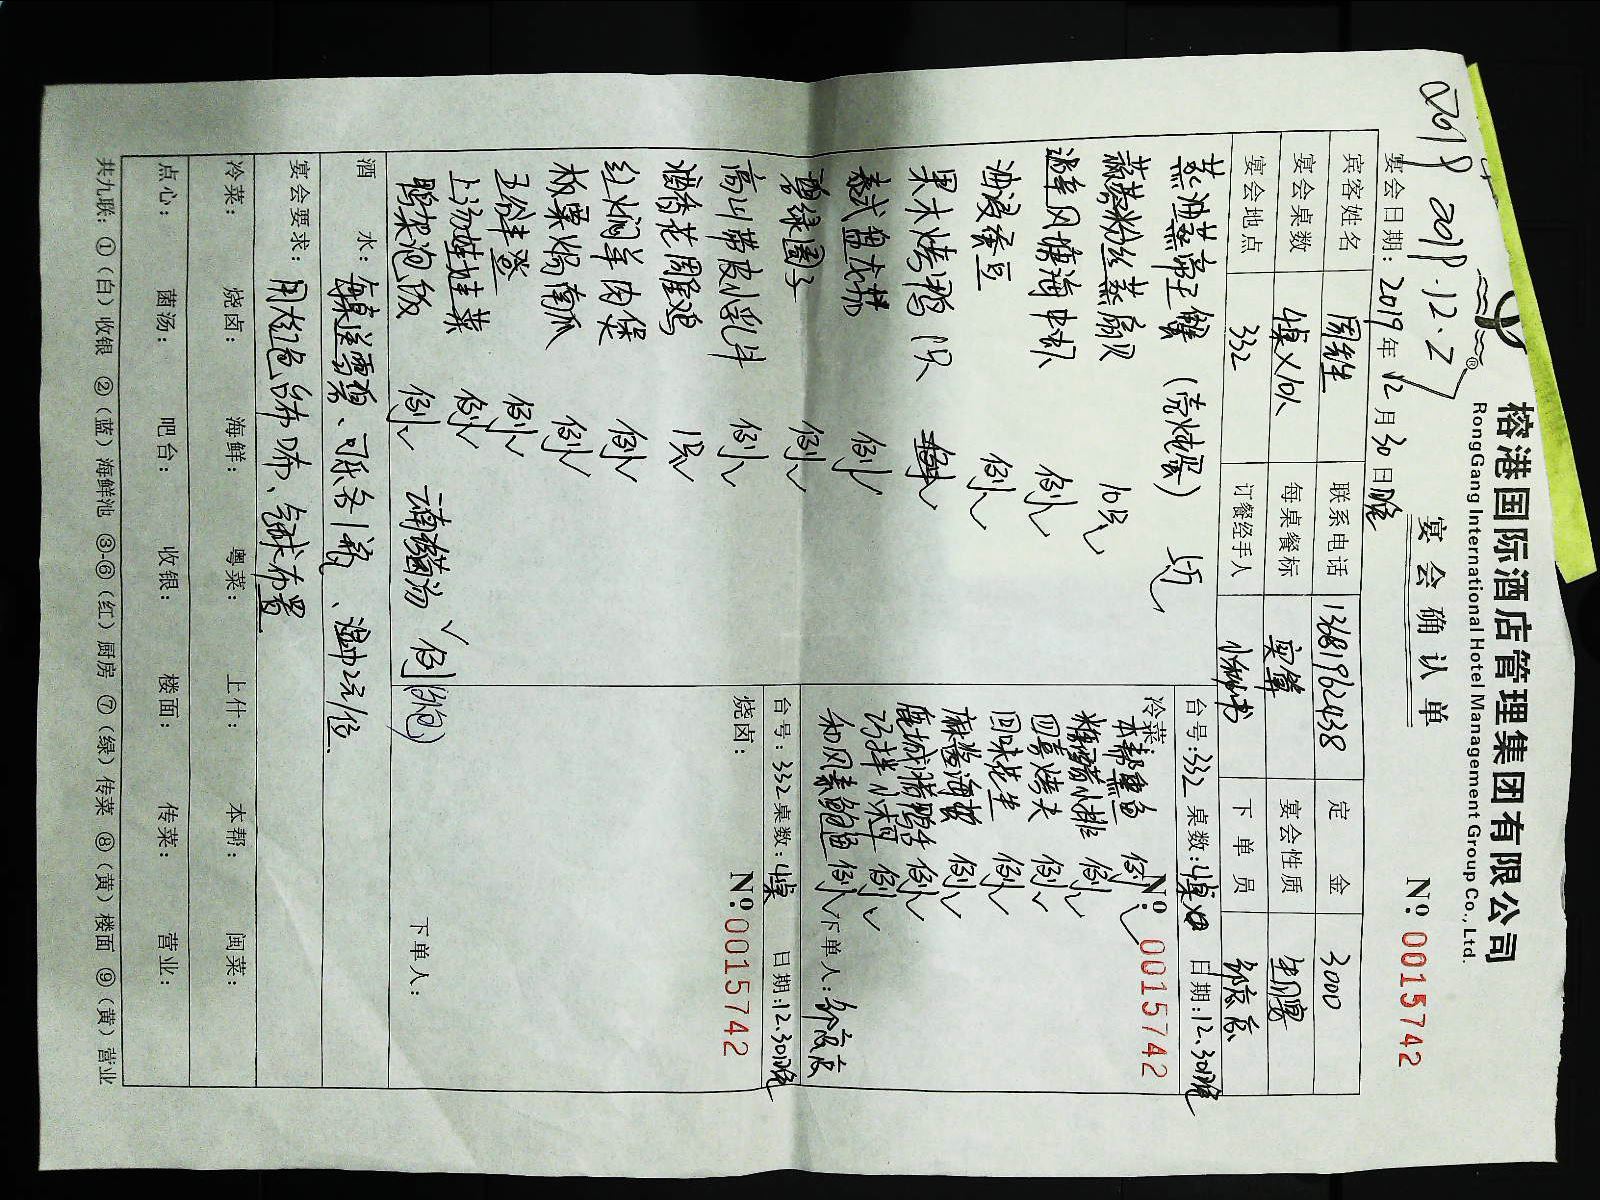 榕港国际酒店管理集团有限公司
RongGang International Hotel Management Group Co., Ltd.
宴会确认单
№:0015742
2019.12.27
宴会日期: 2019年12月30日晚
宾客姓名 周先生 联系电话 13681962438 定金 3000
宴会桌数 4桌×10人 每桌餐标 实算 宴会性质
宴会地点 332 订餐经手人 下单员
(流炖蛋)
蒜蓉粉丝蒸扇贝 10只
避风塘海中虾 例
油浸
果木烤鸭 1只
泰式 例
碧绿圆子 例
高山带皮小乳牛 例
酒香花雕鸡 1只
红焖羊肉煲 例
板栗焗南瓜 例
例
上汤娃娃菜 例
鸭架泡饭 例
云南菌汤 例(包)
台号:332 桌数:4桌 日期:12.30晚
冷菜: №:0015742
本帮熏鱼 例
糖醋小排 例
四喜烤夫 例
回味花生 例
麻酱海蜇 例
例
例
和风素鲍鱼 例
下单人:
台号:332 桌数:4桌 日期:12.30晚
烧卤: №:0015742
下单人:
酒水: 每桌送雪碧、可乐各1瓶、
宴会要求: 用红色台布、气球布置
冷菜: 烧卤: 海鲜: 粤菜: 上什: 本帮: 闽菜:
点心: 菌汤: 吧台: 收银: 楼面: 传菜: 营业:
共九联: ①(白)收银 ②(蓝)海鲜池 ③-⑥(红)厨房 ⑦(绿)传菜 ⑧(黄)楼面 ⑨(黄)营业